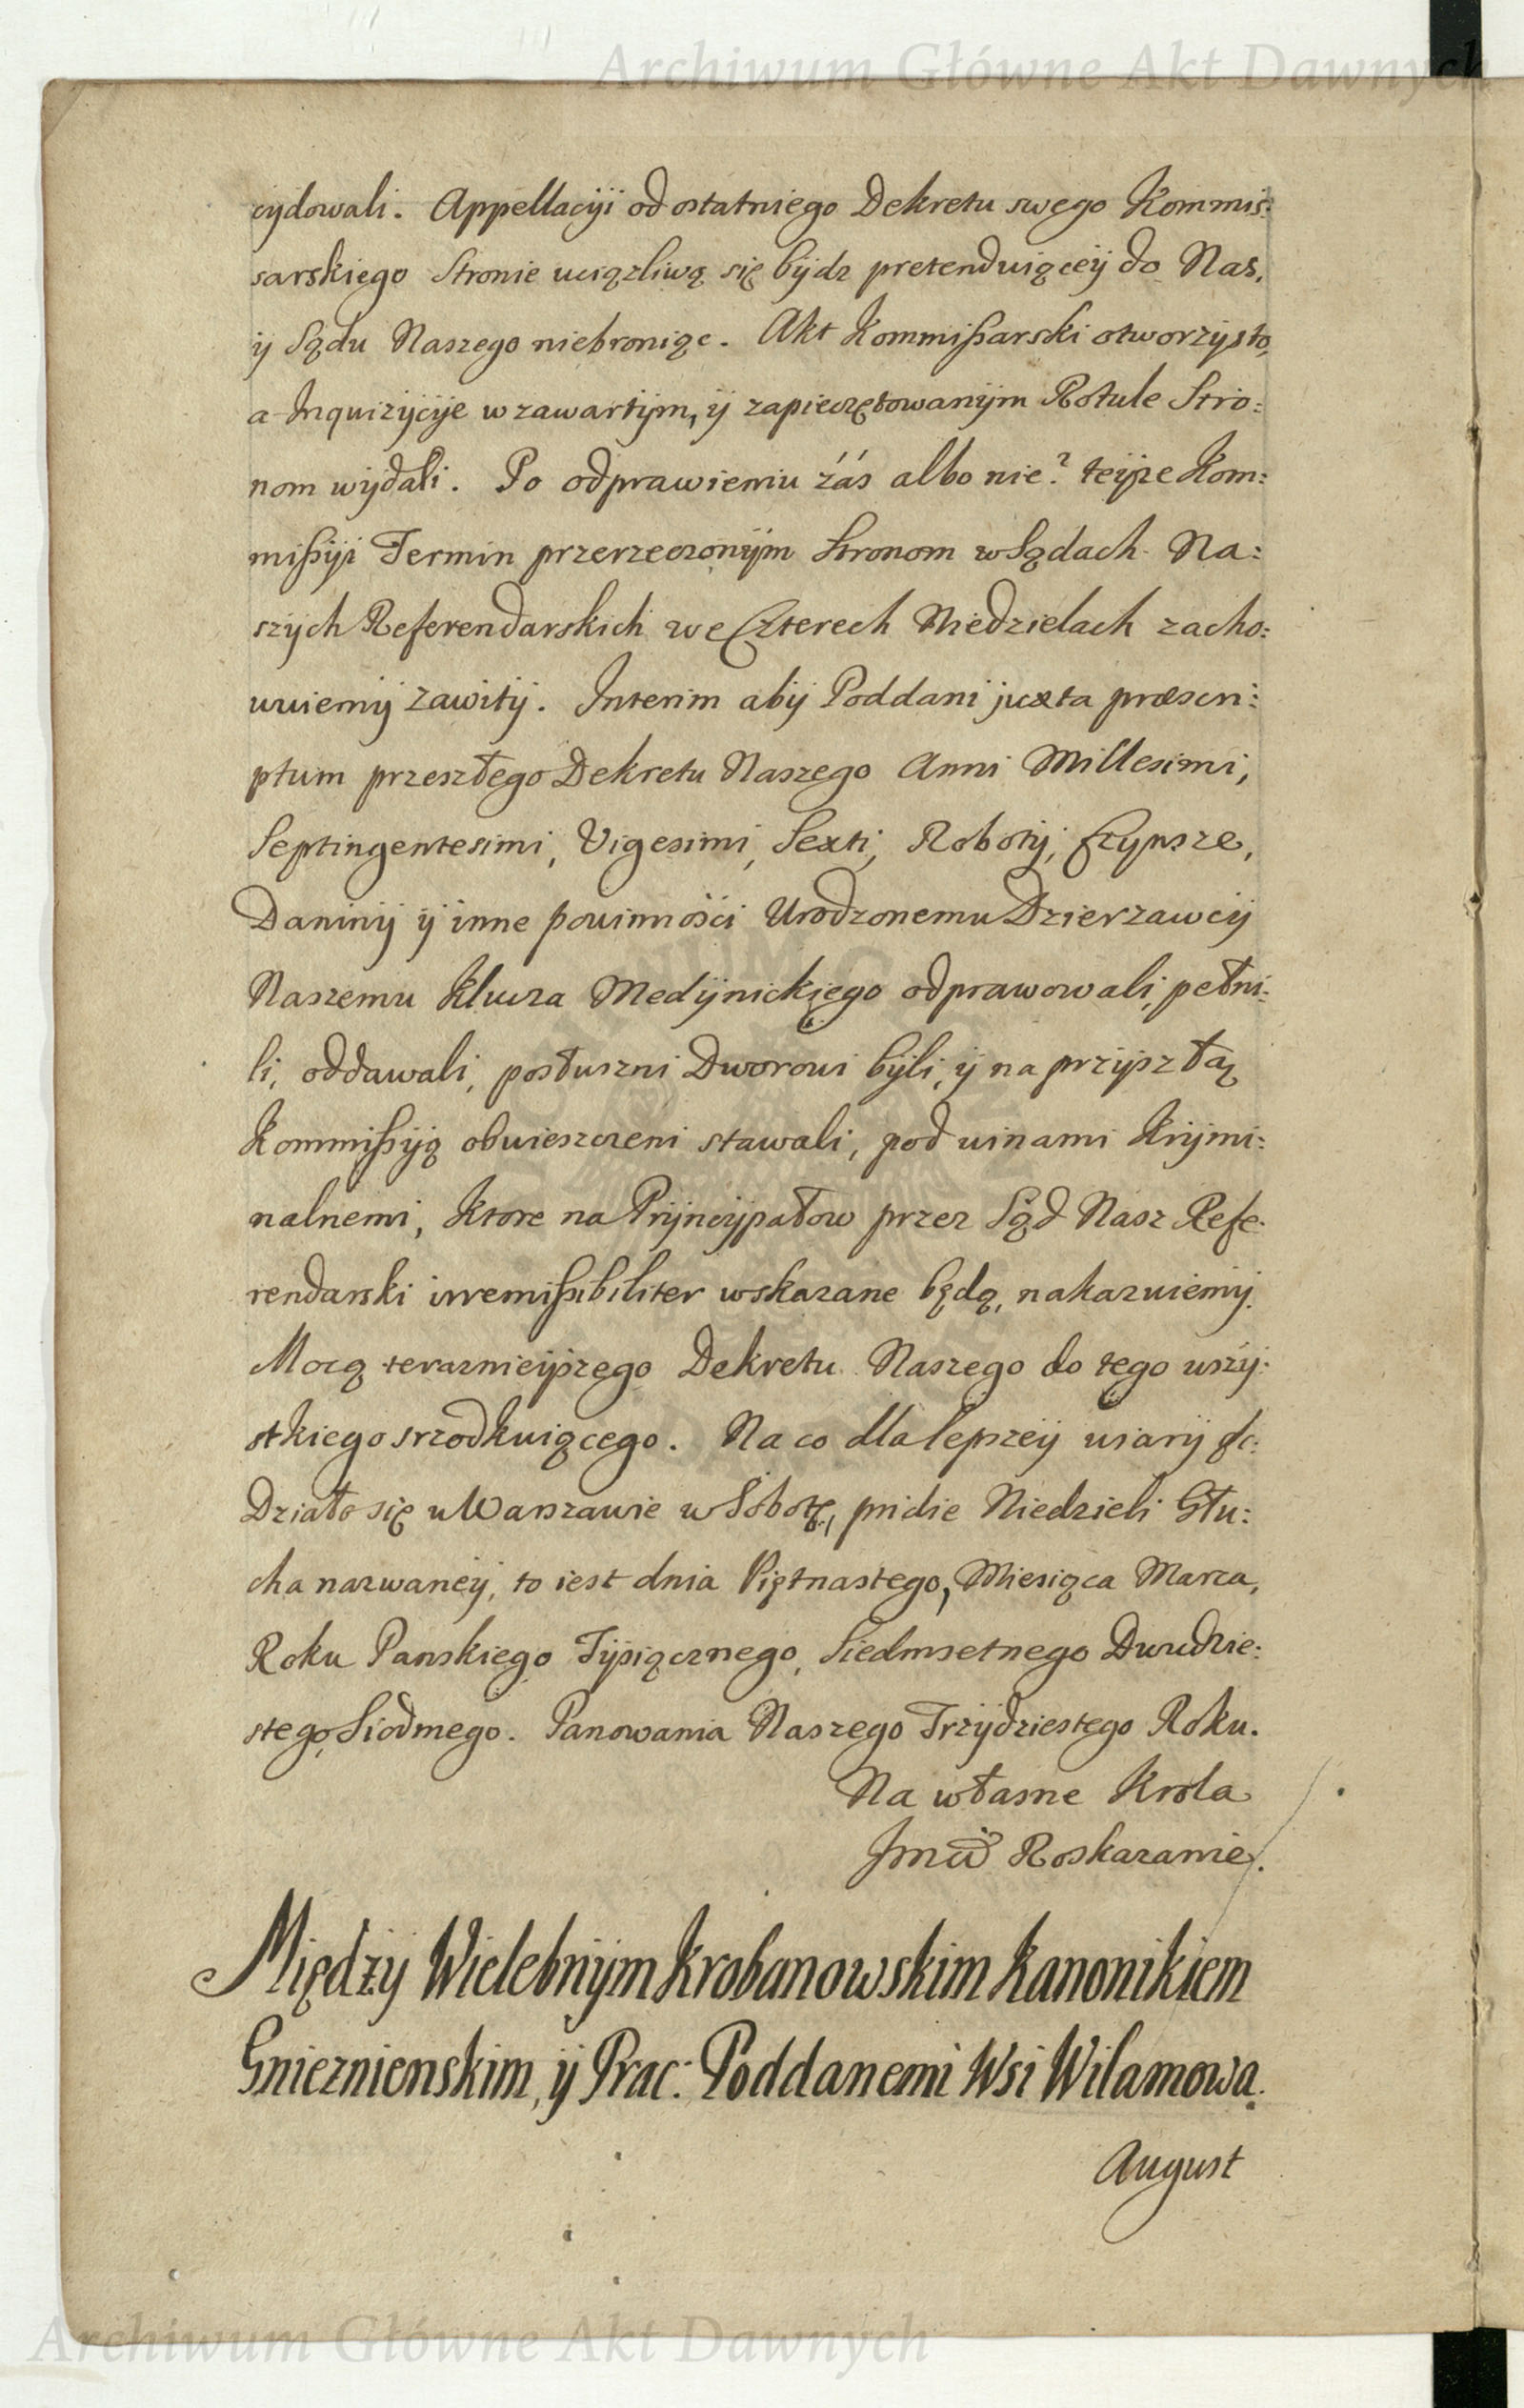 Archiwum Główne Akt Dawnych
cydowali. Appellacyi od ostatniego Dekretu swego Kommis:
sarskiego Stronie uciązliwą się bydz pretenduiącey do Nas,
y Sądu Naszego niebroniąc. Akt Kommißarski otworzysto,
a Inquizycye w zawartym, y zapieczętowanym Rotule Stro:
nom wydali. Po odprawieniu záś albo nie? teyze Kom:
mißyi Termin przerzeczonym Stronom w Sądach Na:
szych Referendarskich we Czterech Niedzielach zacho:
wuiemy zawity. Interim aby Poddani juxta præscri:
ptum przeszłego Dekretu Naszego Anni Millesimi,
Septingentesimi, Vigesimi, Sexti, Roboty, Czynsze,
Daniny y inne powinnośći Urodzonemu Dzierzawcy
Naszemu Klucza Medynickiego odprawowali, pełni:
li, oddawali, posłuszni Dworowi byli, y na przyszłą
Kommißyą obwieszczeni stawali, pod winami Krymi:
nalnemi, Ktore na Pryncypałow przez Sąd Nasz Refe:
rendarski irremißibiliter wskazane będą, nakazuiemy.
Mocą teraznieyszego Dekretu Naszego do tego wszy:
stkiego srzodkuiącego. Na co dla lepszey wiary &c:
Działo się w Warszawie w Sobotę, pridie Niedzieli Głu:
cha nazwaney, to iest dnia Piętnastego, Miesiąca Marca,
Roku Panskiego Tysiącznego, Siedmsetnego Dwudzie:
stego Siodmego. Panowania Naszego Trzydziestego Roku.
Na własne Krola
Jmći Roskazanie.
Między Wielebnym Krobanowskim Kanonikiem
Gnieznienskim, y Prac: Poddanemi Wsi Wilamowa.
August
Archiwum Główne Akt Dawnych